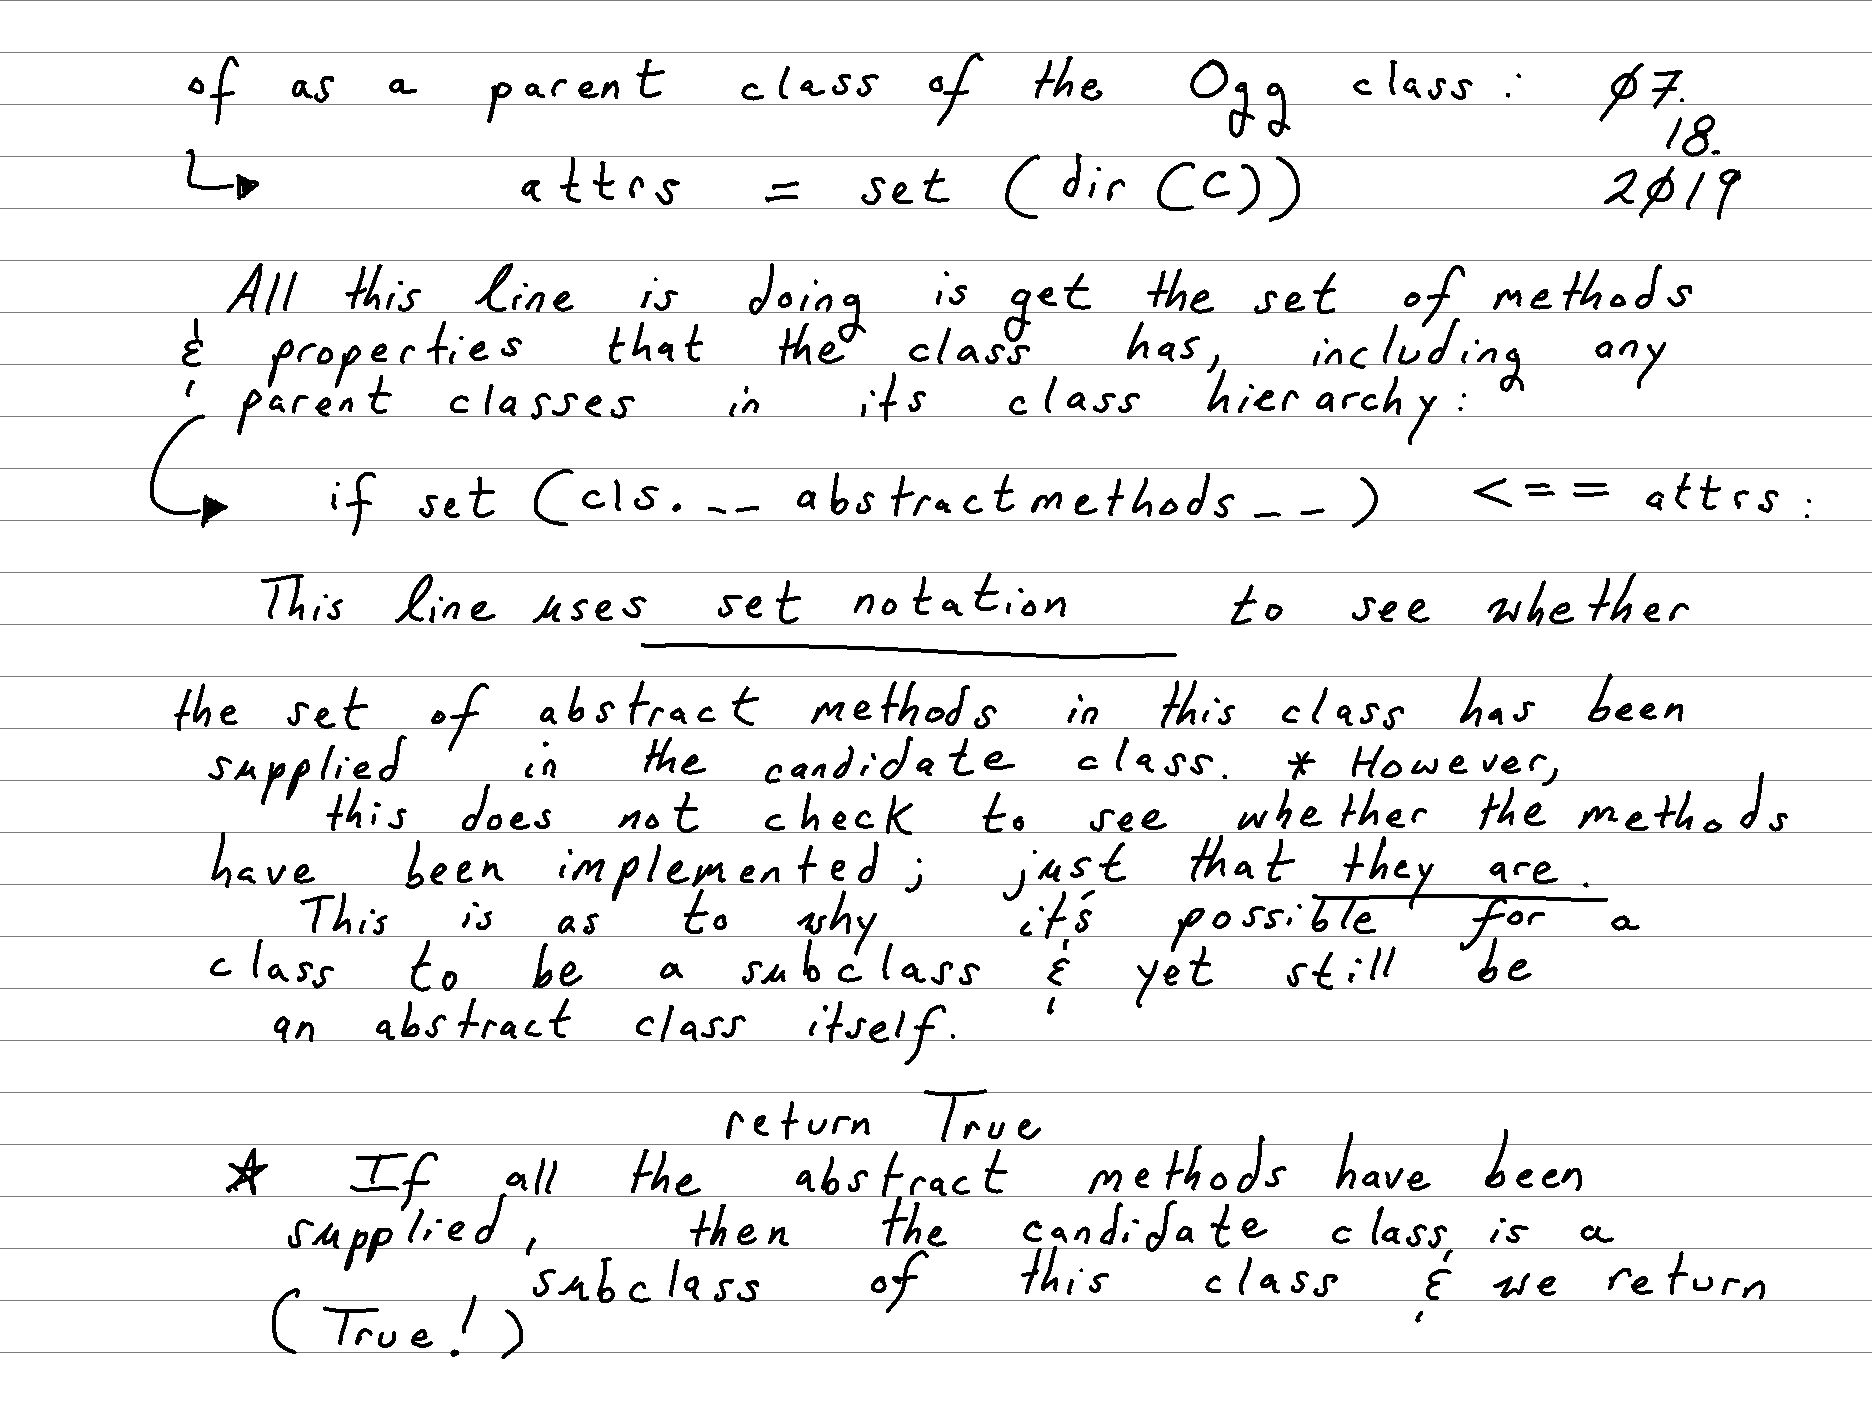 of as a parent class of the Ogg class: Ø7.
18.
↳ attrs = set (dir (C)) 2Ø19
All this line is doing is get the set of methods
& properties that the class has, including any
parent classes in its class hierarchy:
if set (cls. __ abstractmethods __ ) <== attrs:
This line uses set notation to see whether
the set of abstract methods in this class has been
supplied in the candidate class. * However,
this does not check to see whether the methods
have been implemented; just that they are.
This is as to why it's possible for a
class to be a subclass & yet still be
an abstract class itself.
return True
★ If all the abstract methods have been
supplied, then the candidate class is a
subclass of this class & we return
(True!)